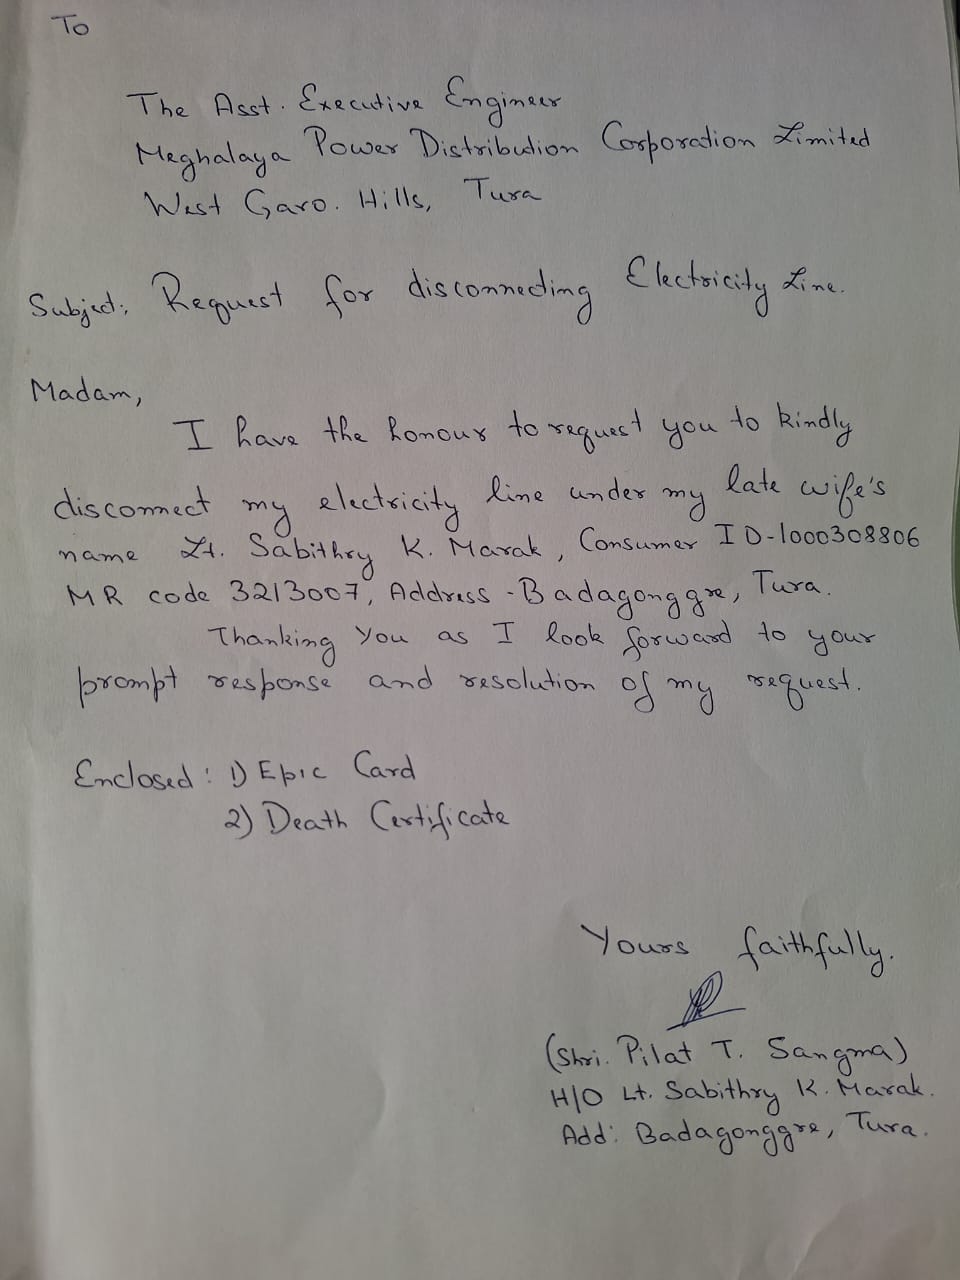 To
The Asst. Executive Engineer
Meghalaya Power Distribution Corporation Limited
West Garo. Hills, Tura
Subject: Request for disconnecting Electricity Line.
Madam,
I have the honour to request you to kindly
disconnect my electricity line under my late wife's
name Lt. Sabithry K. Marak, Consumer ID-1000308806
MR code 3213007, Address - Badagonggre, Tura.
Thanking You as I look forward to your
prompt response and resolution of my request.
Enclosed: 1) Epic Card
2) Death Certificate
Yours faithfully.
(Shri. Pilat T. Sangma)
H/O Lt. Sabithry K. Marak.
Add: Badagonggre, Tura.